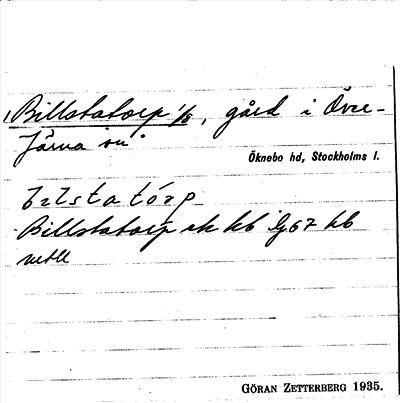 Billstatorp 1/8, gård i Över-
Järna sn
Öknebo hd, Stockholms l.
Billstatorp ek hb G67 hb
GÖRAN ZETTERBERG 1935.